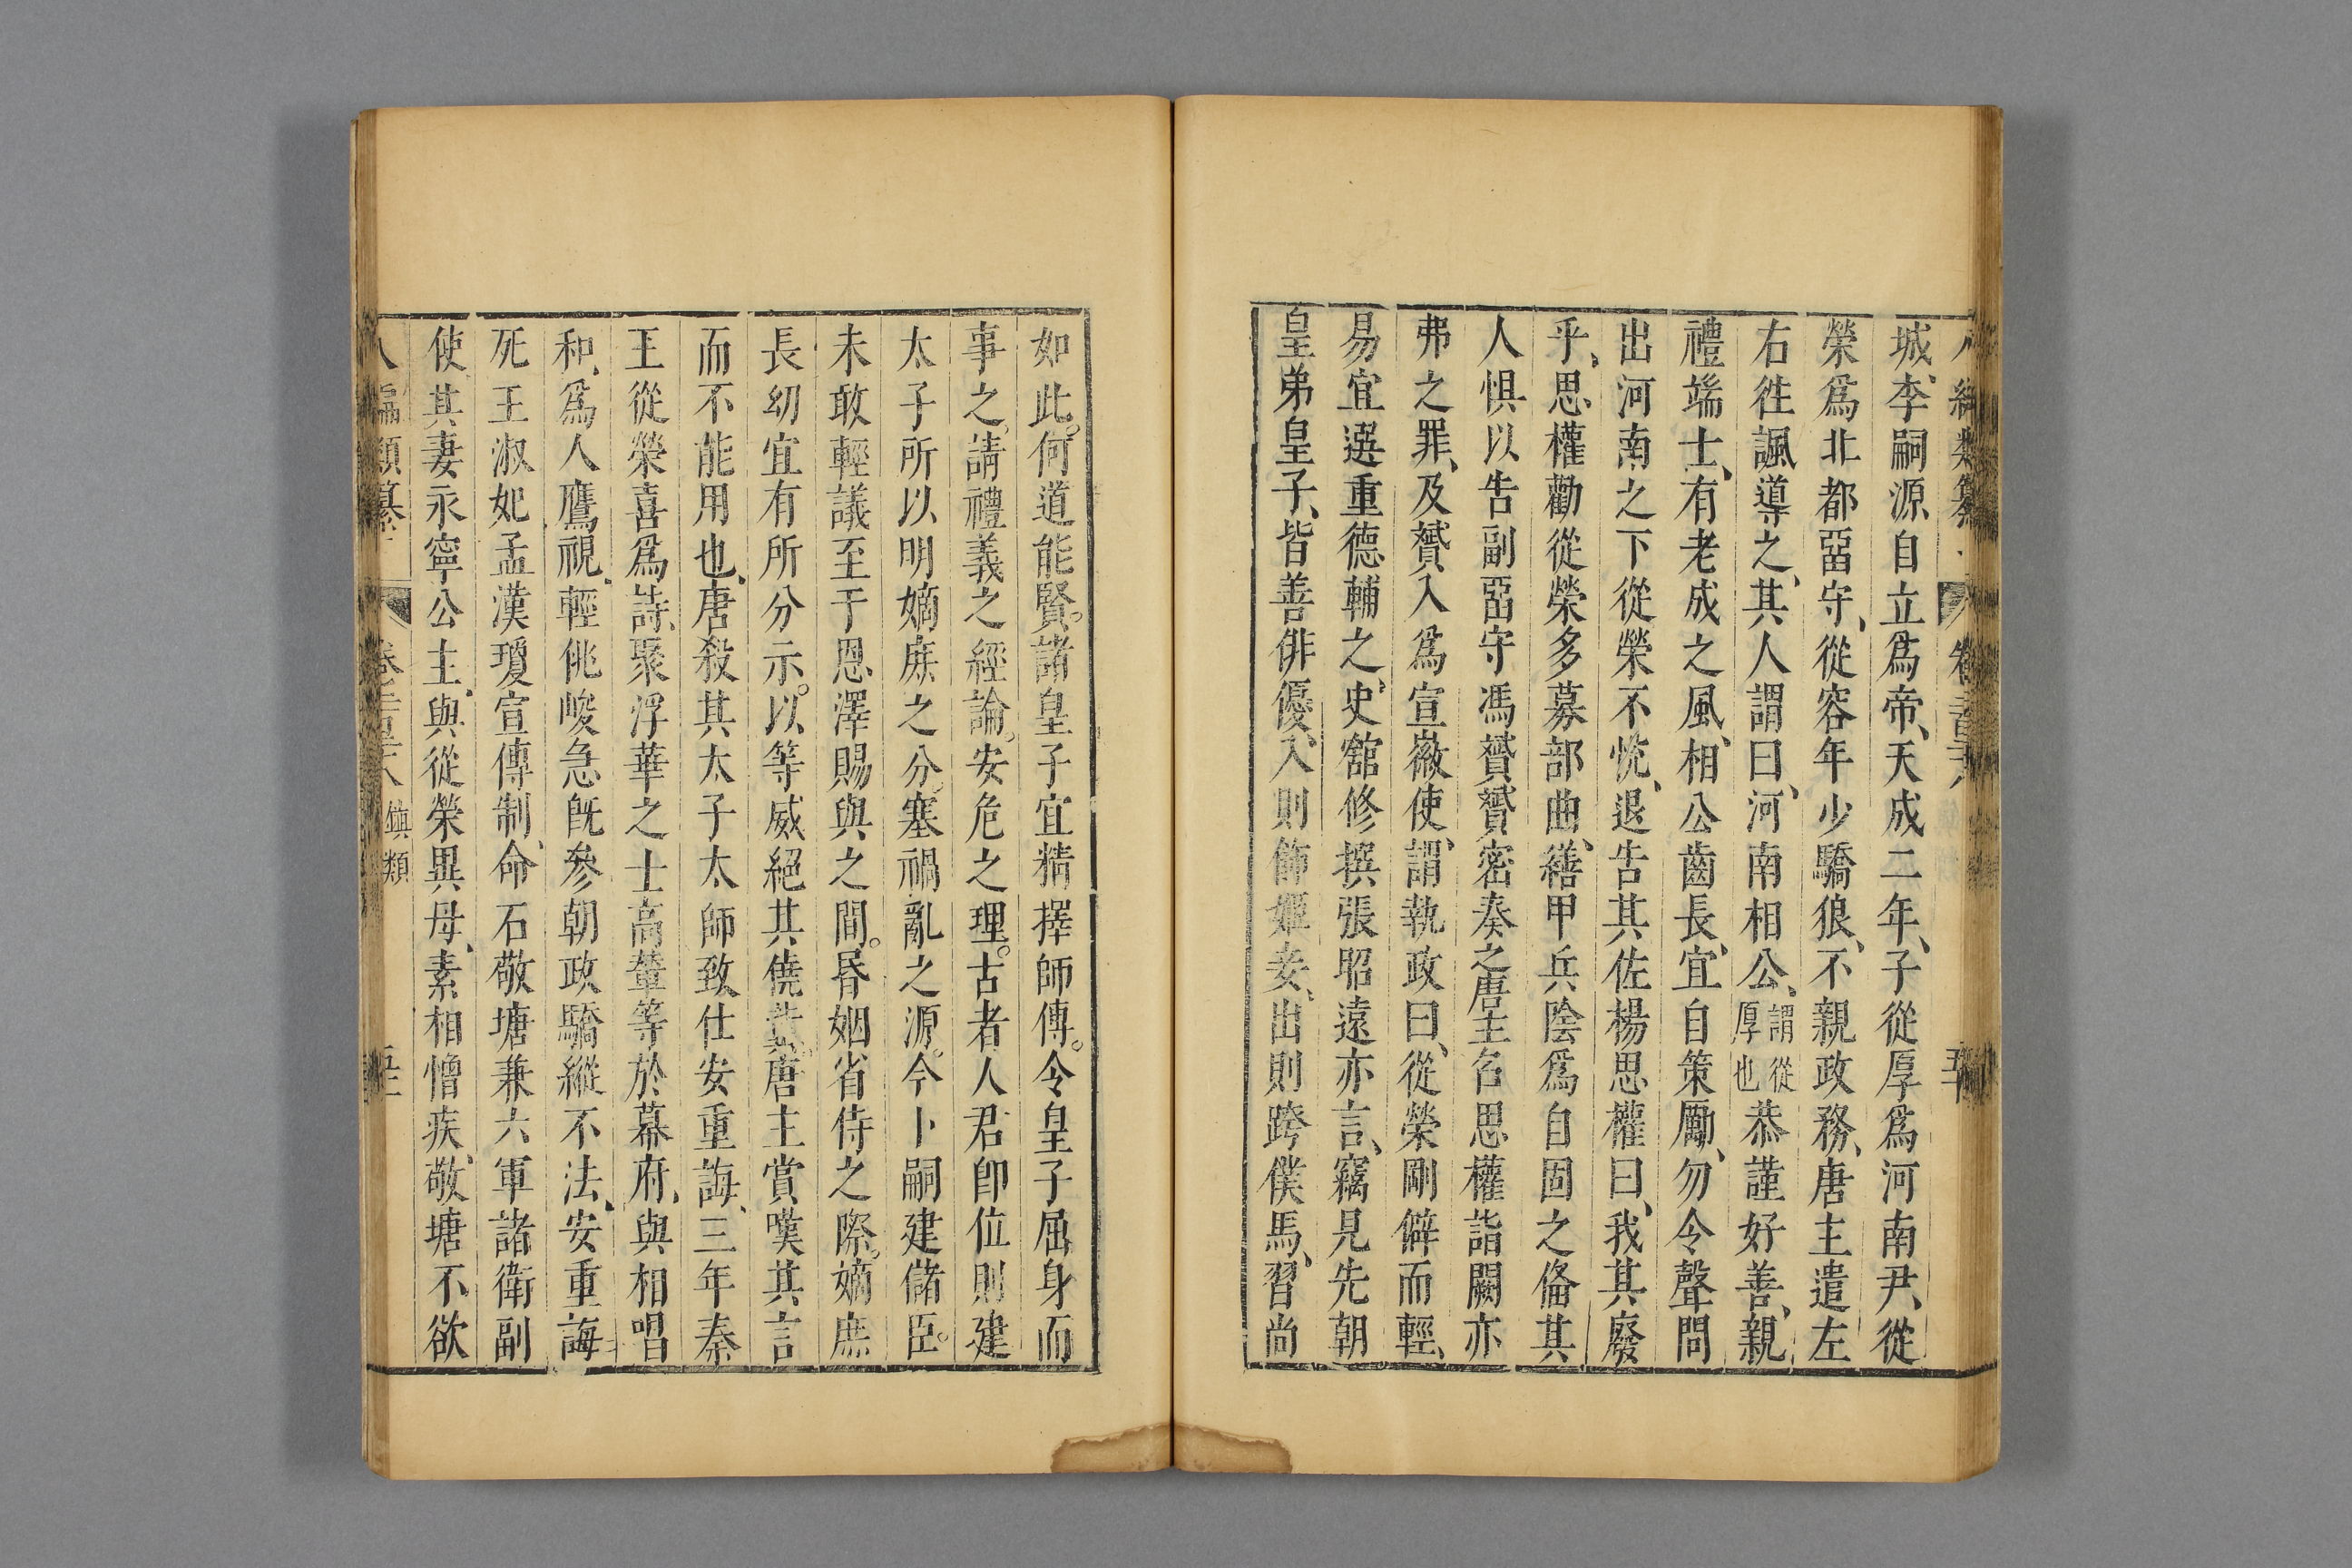 城、李嗣源自立爲帝、天成二年、子從厚爲河南尹、從
榮爲北都畱守、從容年少驕狠、不親政務、唐主遣左
右徃諷導之、其人謂曰、河南相公、謂從厚也恭謹好善、親
禮端士、有老成之風、相公齒長、宜自策勵、勿令聲問
出河南之下從榮不恱、退告其佐楊思權曰、我其廢
乎、思權勸從榮多募部曲、繕甲兵陰爲自固之俻其
人惧以告副畱守馮贇贇密奏之唐主召思權詣闕亦
弗之罪、及贇入爲宣徽使、謂執政曰、從榮剛僻而輕
易宜選重德輔之、史舘修撰張昭遠亦言、竊見先朝
皇弟皇子、皆善俳優、入則飾姬妾、出則跨僕馬、習尚
如此。何道能賢。諸皇子宜精擇師傅。令皇子屈身而
事之。請禮義之經。論安危之理。古者人君卽位則建
太子所以明嫡庶之分。塞禍亂之源。今卜嗣建儲臣。
未敢輕議至于恩澤賜與之間。昏姻省侍之際。嫡庶
長幼宜有所分示。以等威絕其僥兾。唐主賞嘆其言
而不能用也、唐殺其太子太師致仕安重誨、三年秦
王從榮喜爲詩、聚浮華之士高輦等於幕府、與相唱
和、爲人鷹視、輕佻峻急旣參朝政驕縱不法、安重誨
死王淑妃孟漢瓊宣傳制、命石敬塘兼六軍諸衛副
使其妻永寧公主、與從榮異母、素相憎疾、敬塘不欲
編類纂 卷 鎮類